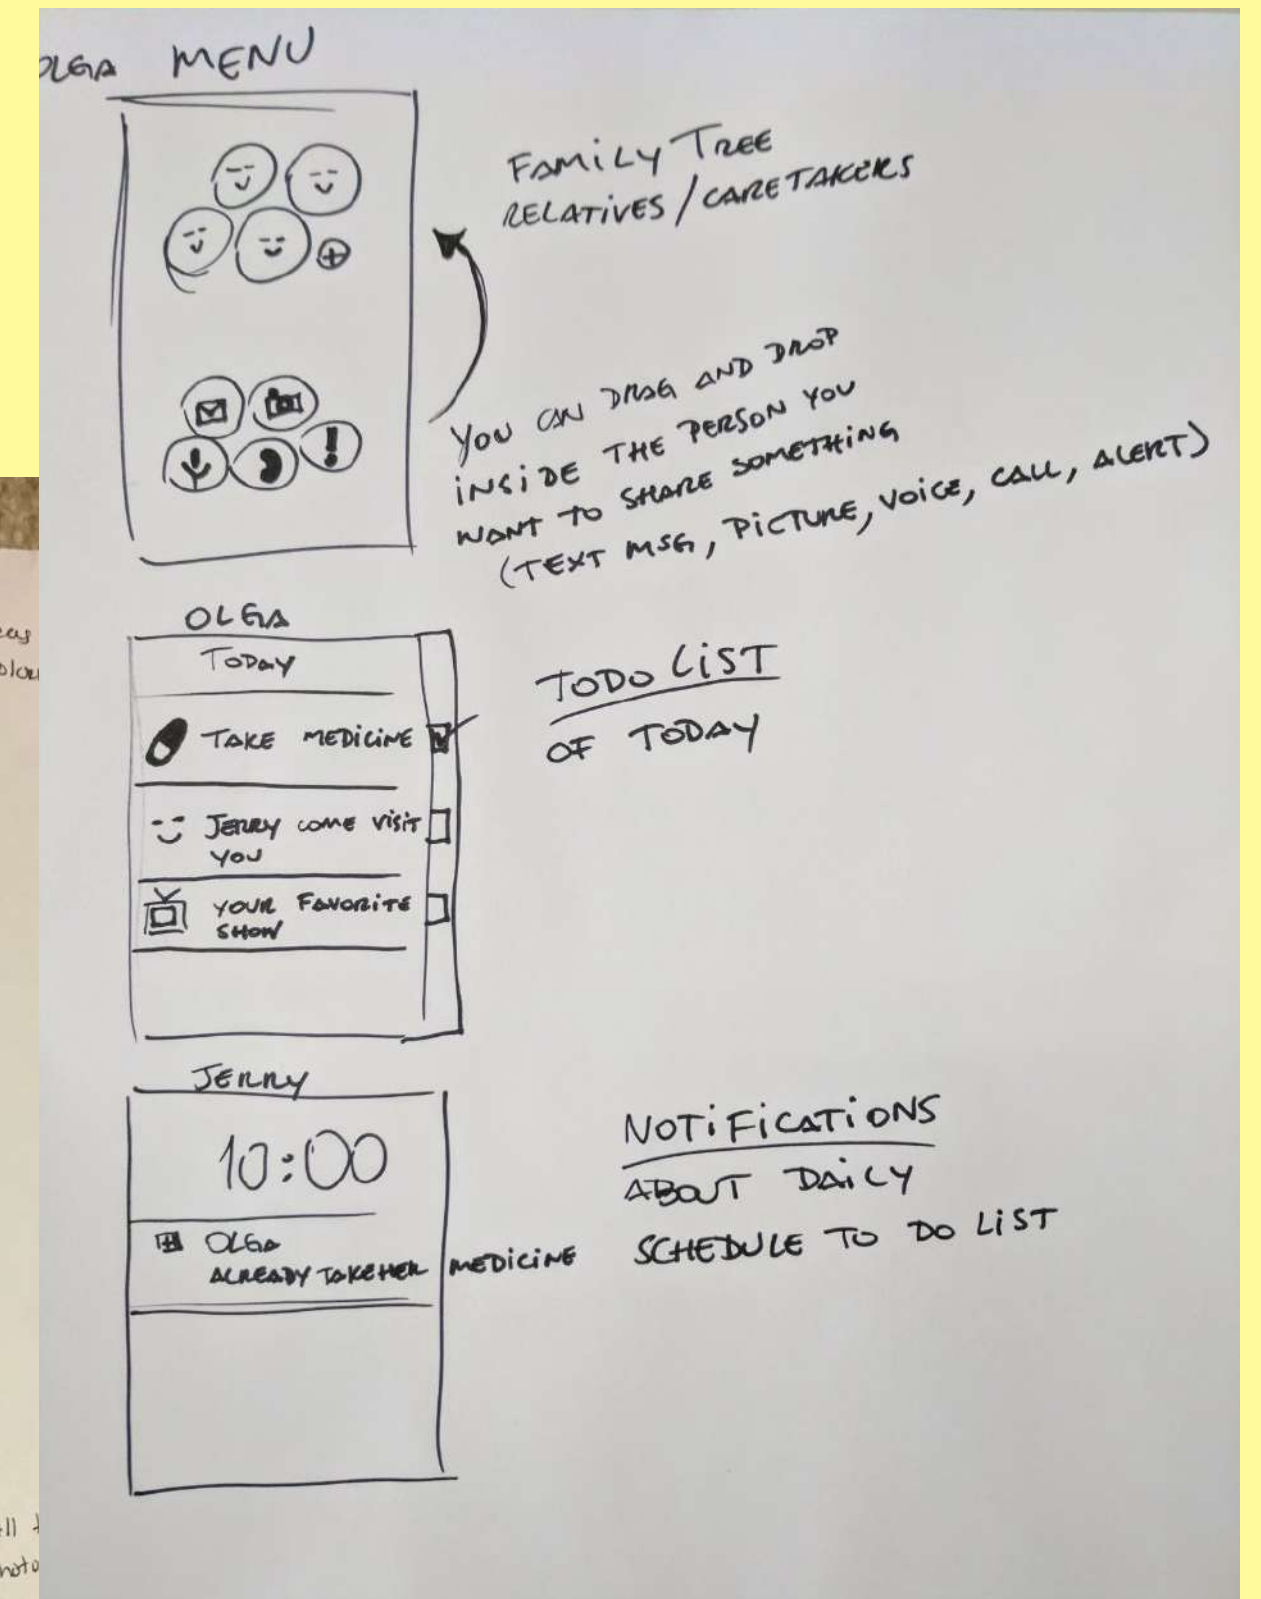 OLGA MENU
FAMILY TREE
RELATIVES/CARETAKERS
YOU CAN DRAG AND DROP
INSIDE THE PERSON YOU
WANT TO SHARE SOMETHING
(TEXT MSG, PICTURE, VOICE, CALL, ALERT)
OLGA
TODAY
TAKE MEDICINE
JERRY COME VISIT
YOU
YOUR FAVORITE
SHOW
TODO LIST
OF TODAY
JERRY
10:00
OLGA
ALREADY TAKE HER MEDICINE
NOTIFICATIONS
ABOUT DAILY
SCHEDULE TO DO LIST